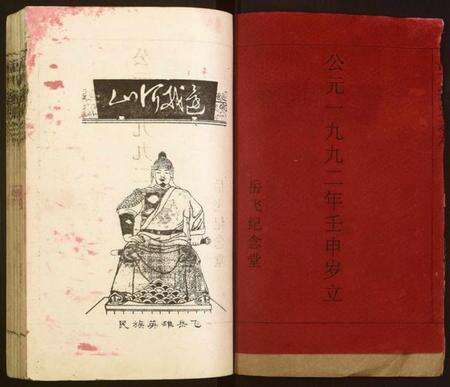 公元一九九二年壬申岁立
岳飞纪念堂
還我河山
民族英雄岳飞